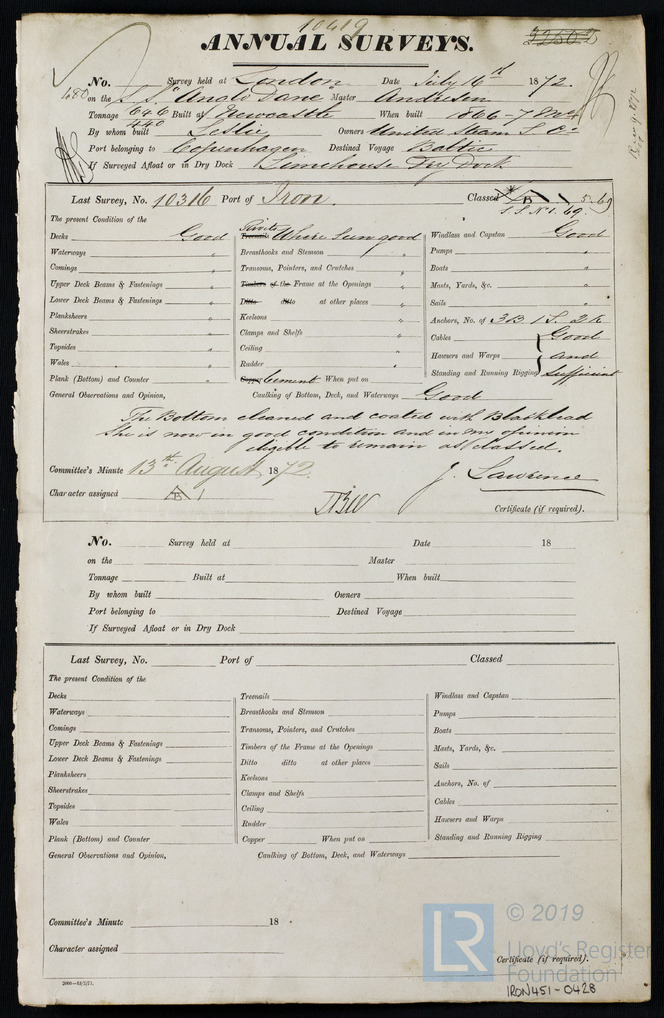 10419
ANNUAL SURVEYS.
22502
No. Survey held at London Date July 16th 1872.
480 on the S.S. "Anglo Dane" Master Andresen
Tonnage 646 Built at Newcastle When built 1866-7
440
By whom built Leslie Owners United Steam S. Co.
Port belonging to Copenhagen Destined Voyage Baltic
If Surveyed Afloat or in Dry Dock Limehouse Dry Dock
Last Survey, No. 10316 Port of Iron. Classed B 1 5.69
S.S. No 1. 69.
The present Condition of the
Decks Good Treenails Rivets Where seen good Windlass and Capstan Good
Waterways " Breasthooks and Stemson " Pumps "
Comings " Transoms, Pointers, and Crutches " Boats "
Upper Deck Beams & Fastenings " Timbers of the Frame at the Openings " Masts, Yards, &c. "
Lower Deck Beams & Fastenings " Ditto ditto at other places " Sails "
Planksheers " Keelsons " Anchors, No. of 3B. 1 S. 2 K.
Sheerstrakes " Clamps and Shelfs " Cables Good
Topsides " Ceiling " Hawsers and Warps and
Wales " Rudder " Standing and Running Rigging sufficient
Plank (Bottom) and Counter " Copper Cement When put on "
General Observations and Opinion, Caulking of Bottom, Deck, and Waterways Good
The Bottom cleaned and coated with Blacklead
She is now in good condition and in my opinion
eligible to remain as classed.
Committee's Minute 13th August 1872. J. Lawrence
Character assigned B 1
Certificate (if required).
No. Survey held at Date 18
on the Master
Tonnage Built at When built
By whom built Owners
Port belonging to Destined Voyage
If Surveyed Afloat or in Dry Dock
Last Survey, No. Port of Classed
The present Condition of the
Decks Treenails Windlass and Capstan
Waterways Breasthooks and Stemson Pumps
Comings Transoms, Pointers, and Crutches Boats
Upper Deck Beams & Fastenings Timbers of the Frame at the Openings Masts, Yards, &c.
Lower Deck Beams & Fastenings Ditto ditto at other places Sails
Planksheers Keelsons Anchors, No. of
Sheerstrakes Clamps and Shelfs Cables
Topsides Ceiling Hawsers and Warps
Wales Rudder Standing and Running Rigging
Plank (Bottom) and Counter Copper When put on
General Observations and Opinion, Caulking of Bottom, Deck, and Waterways
Committee's Minute 18
Character assigned
Certificate (if required).
LR © 2019
Lloyd's Register
Foundation
IRON451-0428